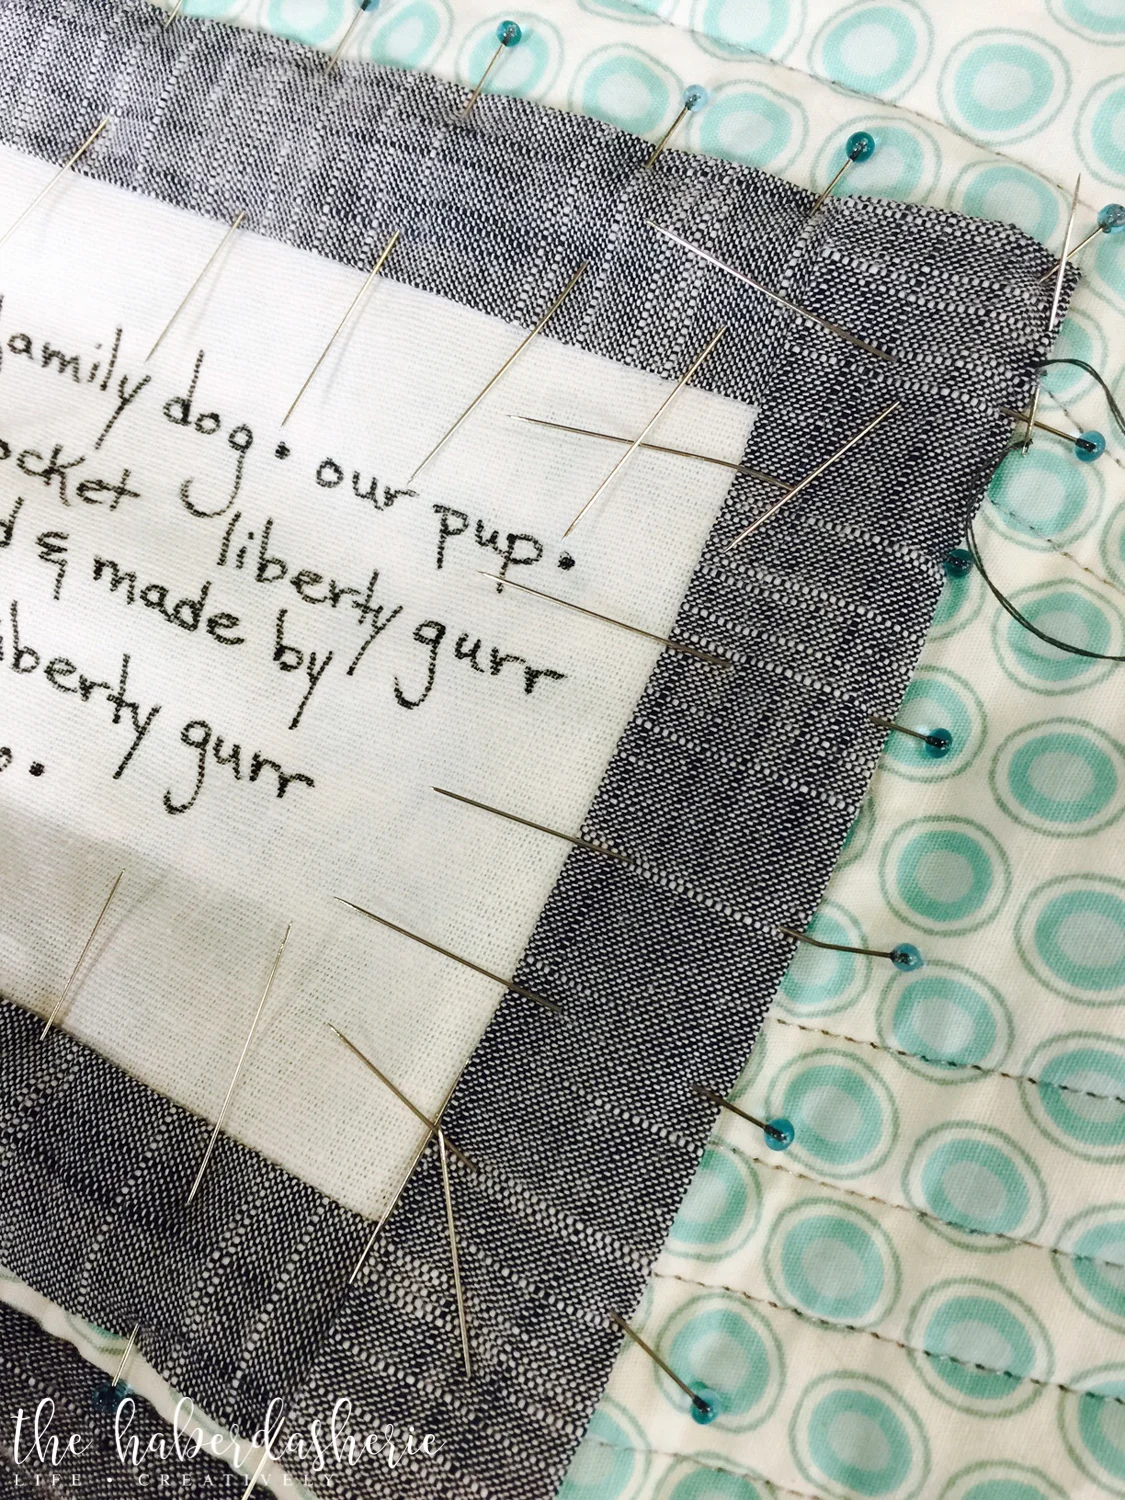 family dog. our pup.
ocket liberty gurr
d & made by
iberty gurr
o.
the haberdasherie
LIFE • CREATIVELY